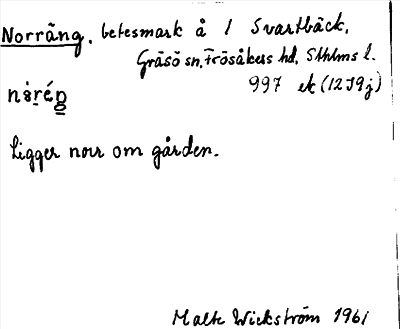 Norräng, betesmark å 1 Svartbäck,
Gräsö sn, Frösåkers hd, Sthlms l.
997 ek (12I9j)
Ligger norr om gården.
Malte Wickström 1961